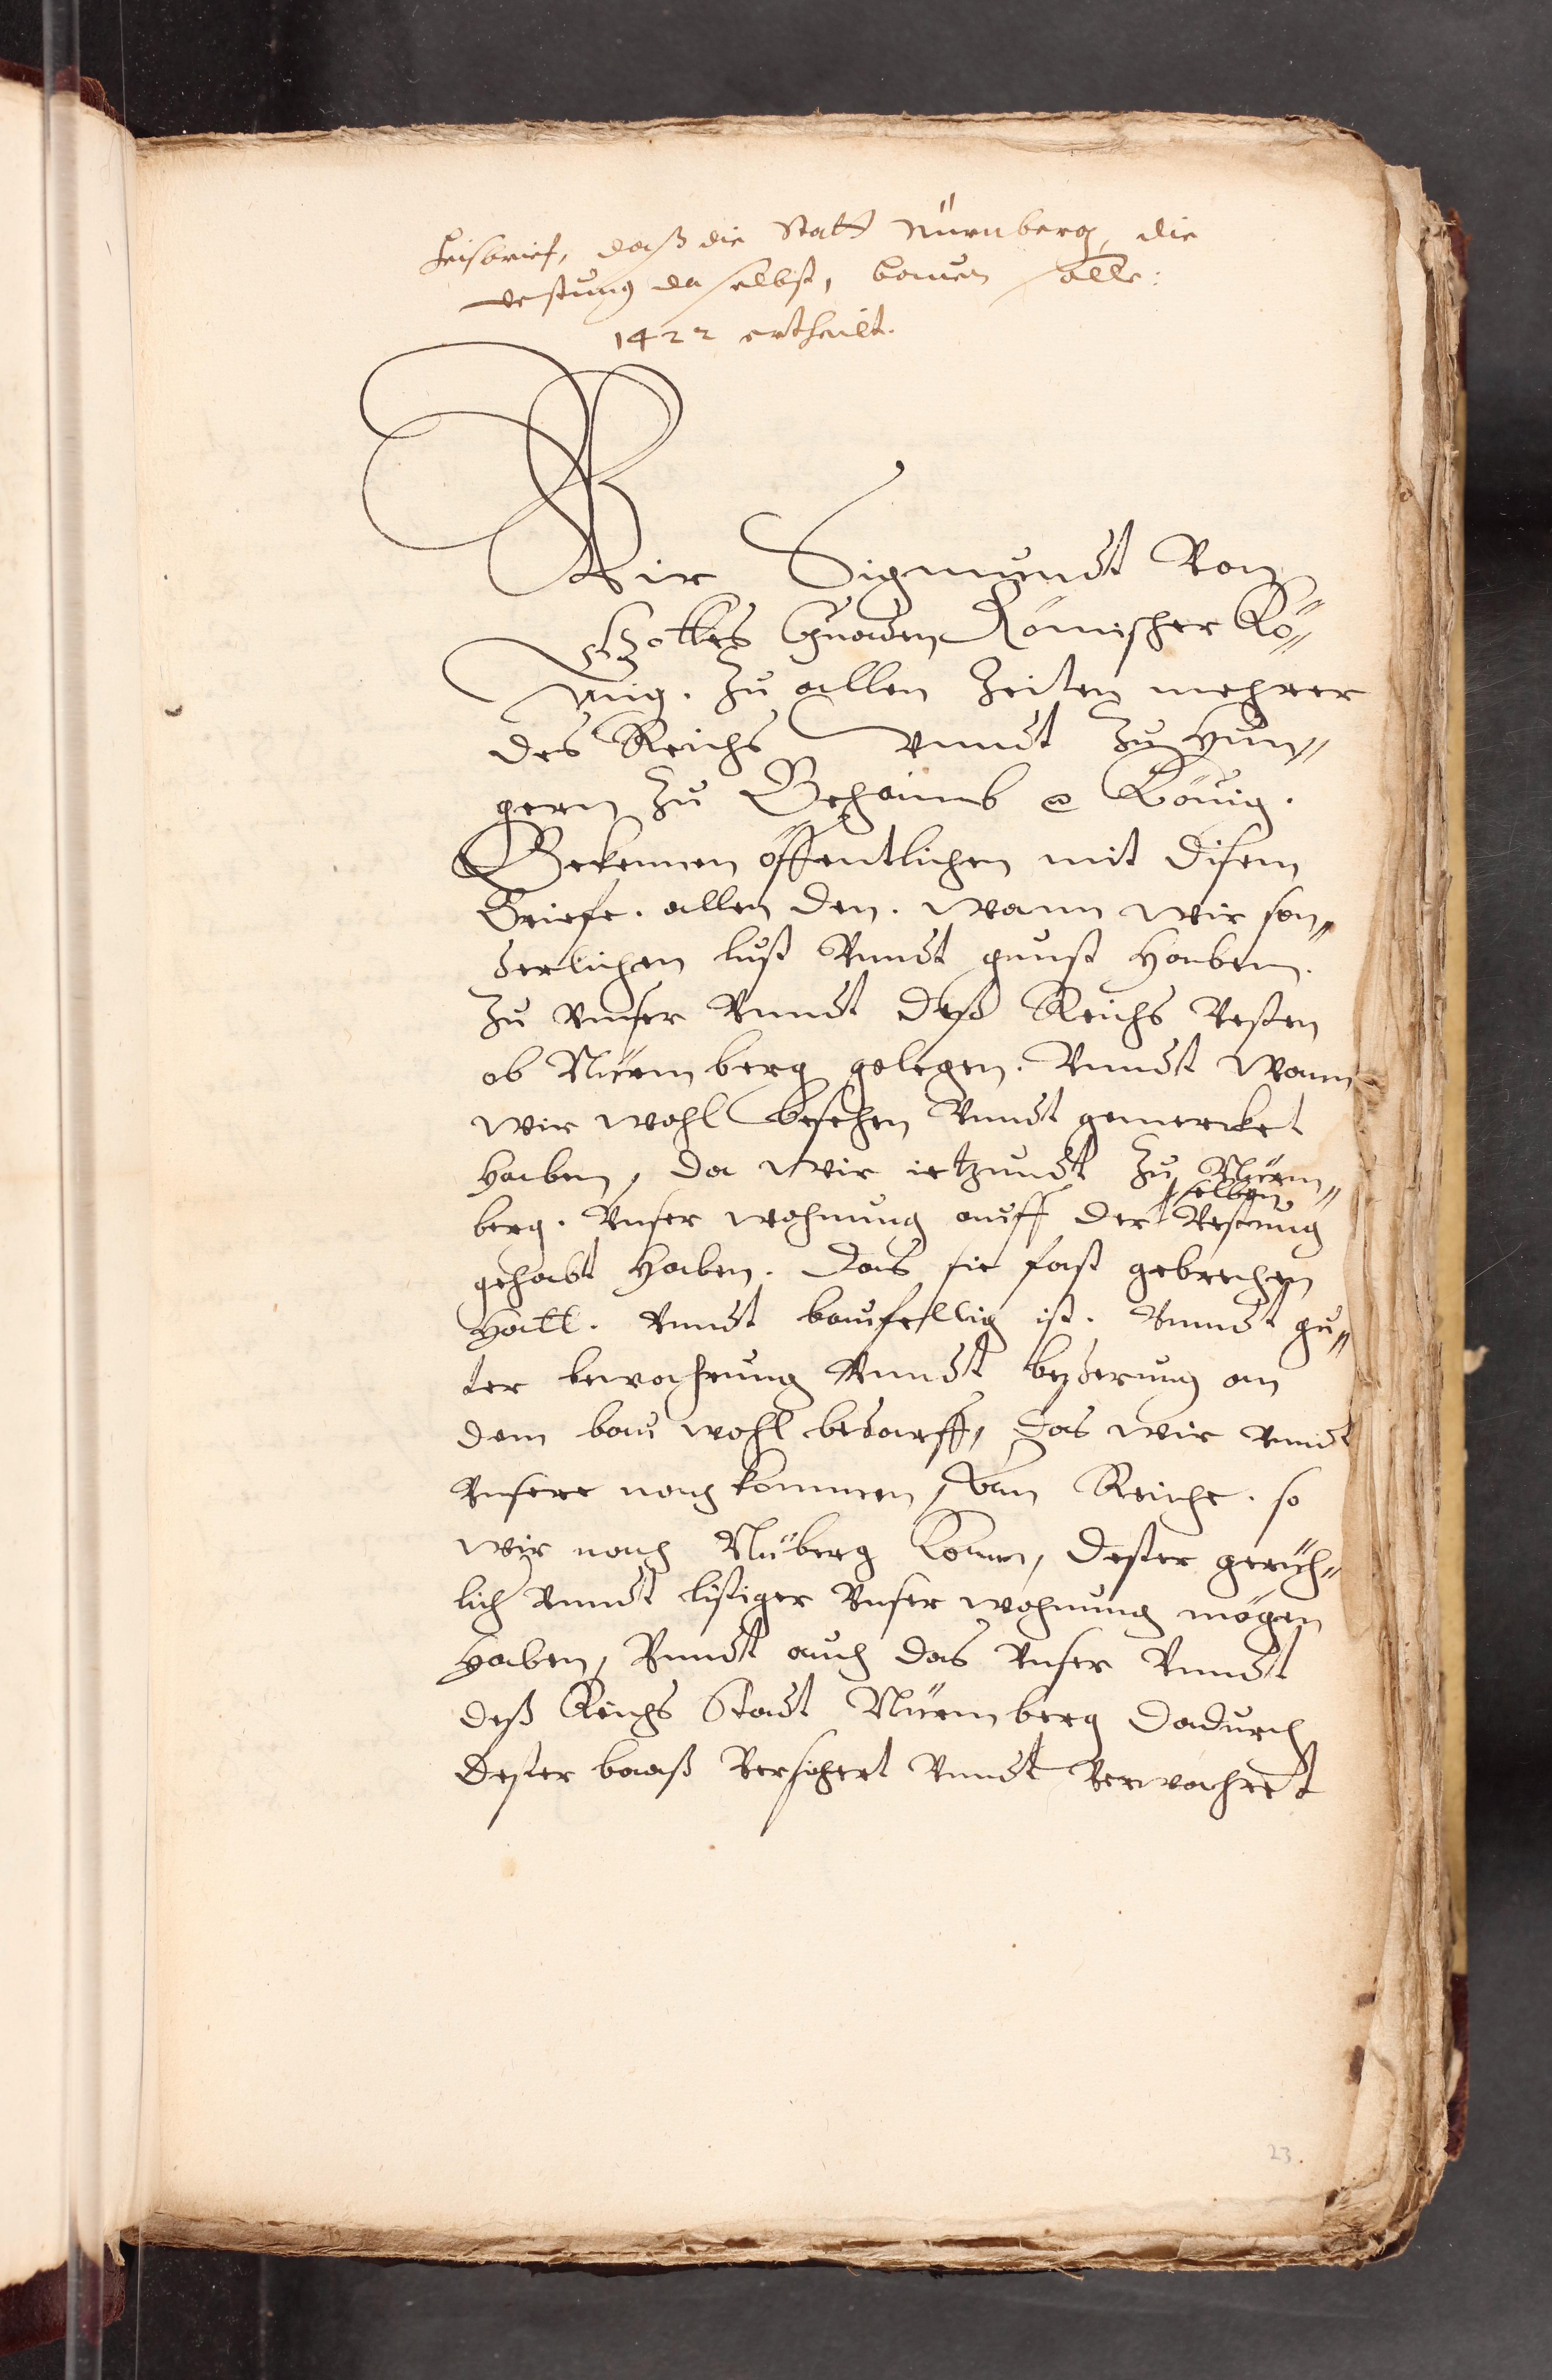 daß die Statt Nürnberg, die
Vestung daselbst, bauen solle:
1422 ertheilt.
Wir Sigmundt Von
Gottes Gnaden Römischer Kö„
nig. Zu allen Zeiten mehrer
des Reichs Vnndt Zu Hun„
gern Zu Behaimb König.
Bekennen öffentlichen mit disem
Briefe. allen den. wann wir son„
derlichen lust Vnndt gunst haben.
Zu Vnser Vnndt deß Reichs Vesten
ob Nürmberg gelegen. Vnndt wann
wir wohl besehen Vnndt gemercket
haben, da wir ietzundt Zu Nürm„
selben
berg. Vnser wohnung auff der Vestung
gehabt haben. das sie fast gebrechen
hatt. Vnndt baufellig ist. Vnndt gu„
ter bewahrung Vnndt beßerung an
dem bau wohl bedarff, das wir Vnndt
Vnsere nachkommen, am Reiche. so
wir nach Nüberg komen, dester gerüh„
lich Vnndt listiger Vnser wohnung mögen
haben, Vnndt auch das Vnser Vnndt
deß Reichs Stadt Nürmberg dadurch
dester baaß Versichert Vnndt Verwahret
23.